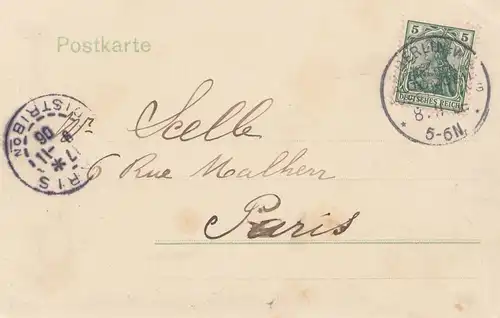 Postkarte
5 5
DEUTSCHES REICH
BERLIN W
5-6N.
DISTRIBON
PARIS
Scelle
6 Rue Malherr
Paris